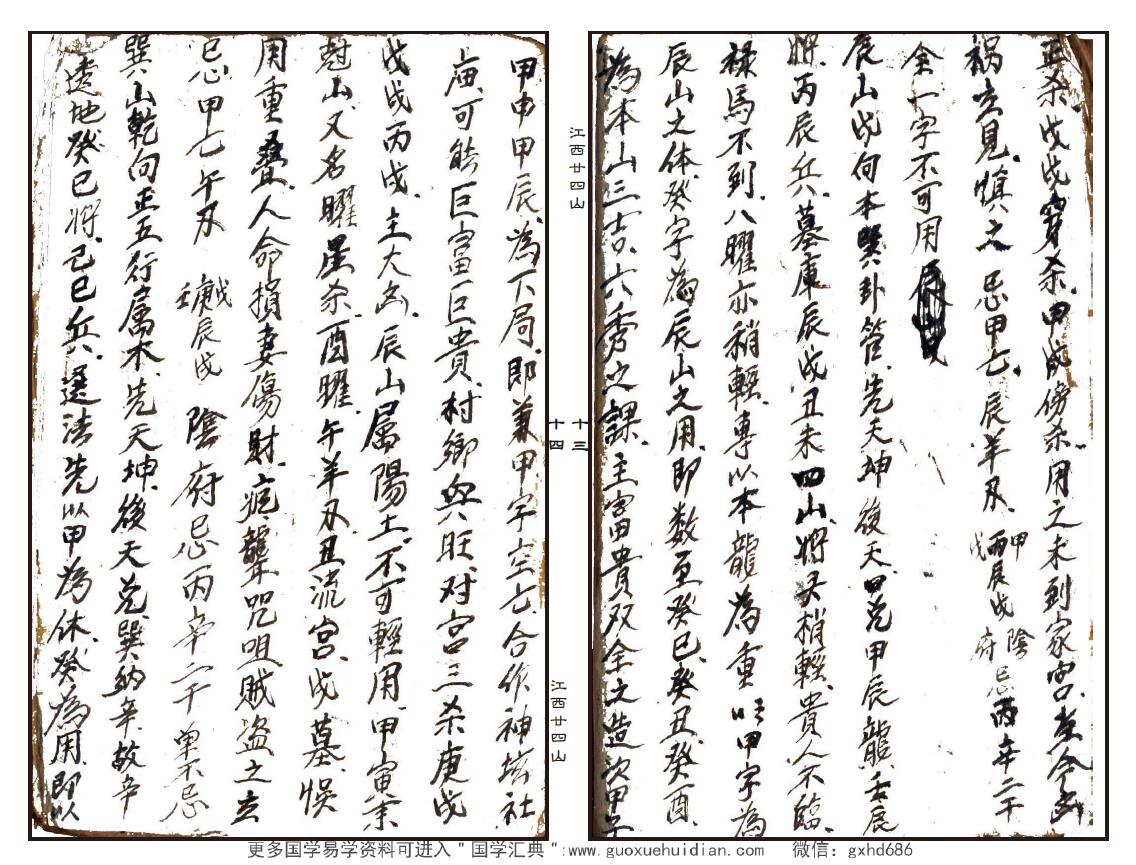 正杀戊戌穿杀甲戌傍杀用之未到家
祸立見慎之忌甲七辰羊刃甲丙辰戊戌陰府忌丙辛二干
全一字不可用
辰山戌向本巽卦管先天坤後天兑甲辰龍壬辰
將丙辰兵墓庫辰戌丑未四山將又稍輕貴人不臨
禄馬不到八曜亦稍輕專以本龍為重以甲字為
辰山之体癸字為辰山之用即数至癸巳癸丑癸酉
為本山三吉六秀之課主富貴双全之造次甲午
甲申甲辰為下局即兼甲字空亡合作神坛社
庙可能巨富巨貴村鄉興旺对宫三杀庚戌
戊戌丙戌主大凶辰山屬陽土不可輕用甲寅末
尅山又名曜星杀酉曜午羊刃丑流宫戌墓悞
用重叠人命損妻傷財疯聾咒咀賊盗之立
忌甲七午刃戊庚壬辰戌陰府忌丙辛二干單不忌
巽山乾向正五行屬木先天坤後天兑巽納辛故辛
透地癸巳將己巳兵選法先以甲為休癸為用即以
江西廿四山
十三
十四
江西廿四山
更多国学易学资料可进入＂国学汇典＂:www.guoxuehuidian.com 微信：gxhd686